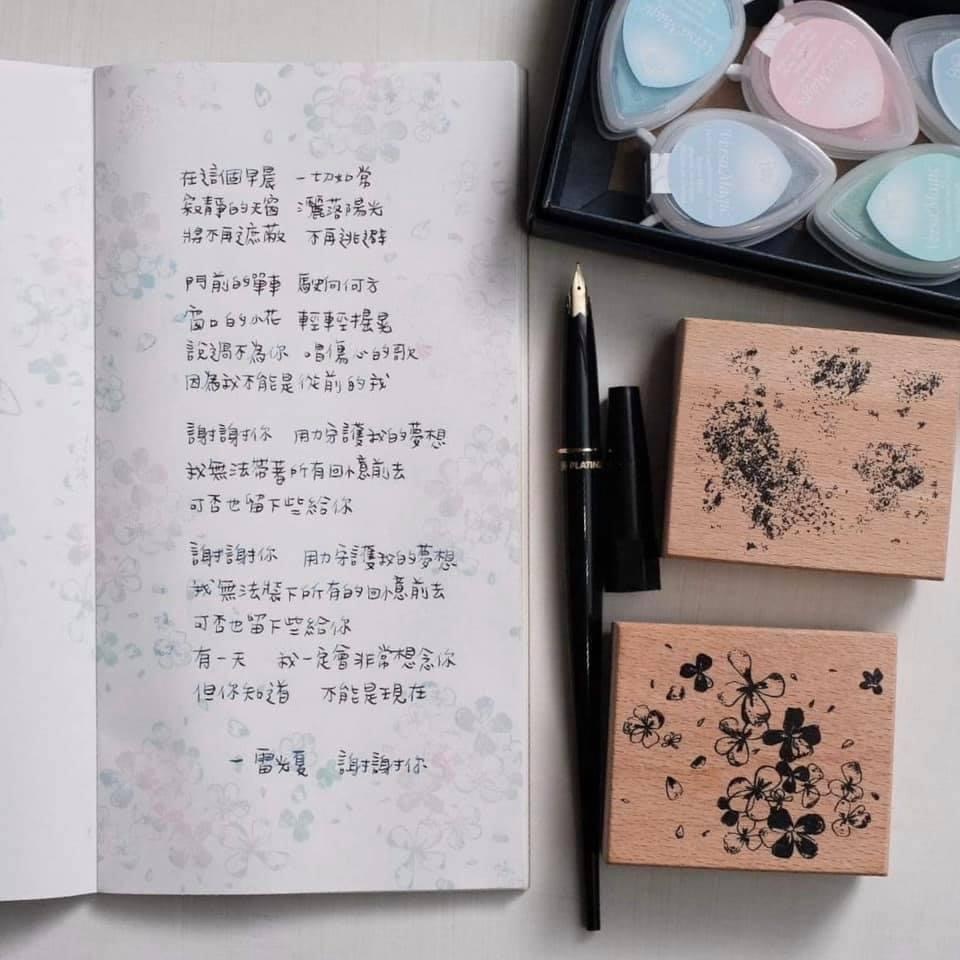 在這個早晨 一切如常
寂靜的天窗 灑落陽光
將不再遮蔽 不再逃避
門前的單車 駛向何方
窗口的小花 輕輕搖晃
說過不為你 唱傷心的歌
因為我不能是從前的我
謝謝你 用力守護我的夢想
我無法帶著所有回憶前去
可否也留下些給你
謝謝你 用力守護我的夢想
我無法裝下所有的回憶前去
可否也留下些給你
有一天 我一定會非常想念你
但你知道 不能是現在
- 雷光夏 謝謝你
PLATINUM
VersaMagic
VersaMagic
VersaMagic